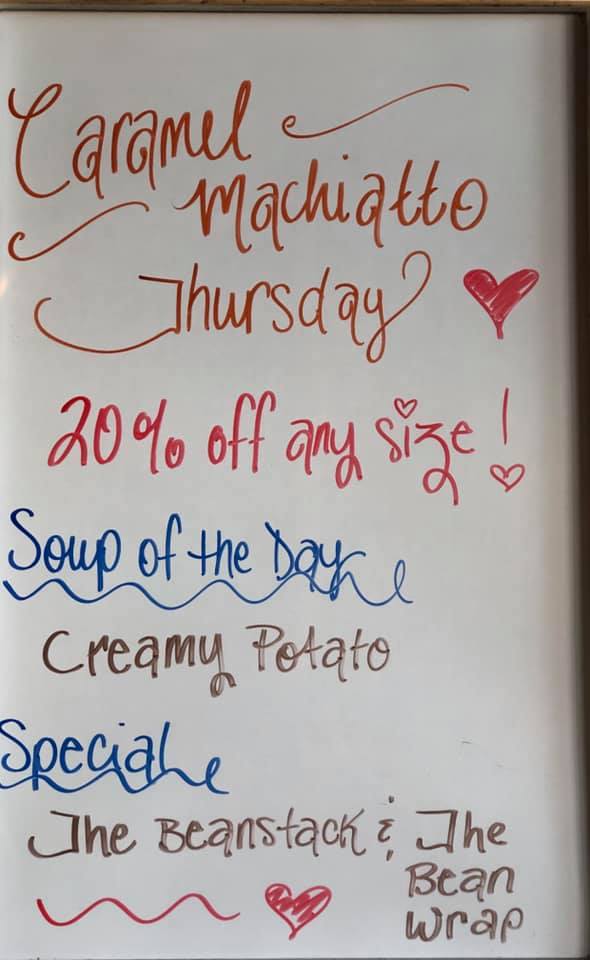 Caramel
Machiatto
Thursday
20% off any size!
Soup of the Day
Creamy Potato
Special
The Beanstack & The
Bean
Wrap